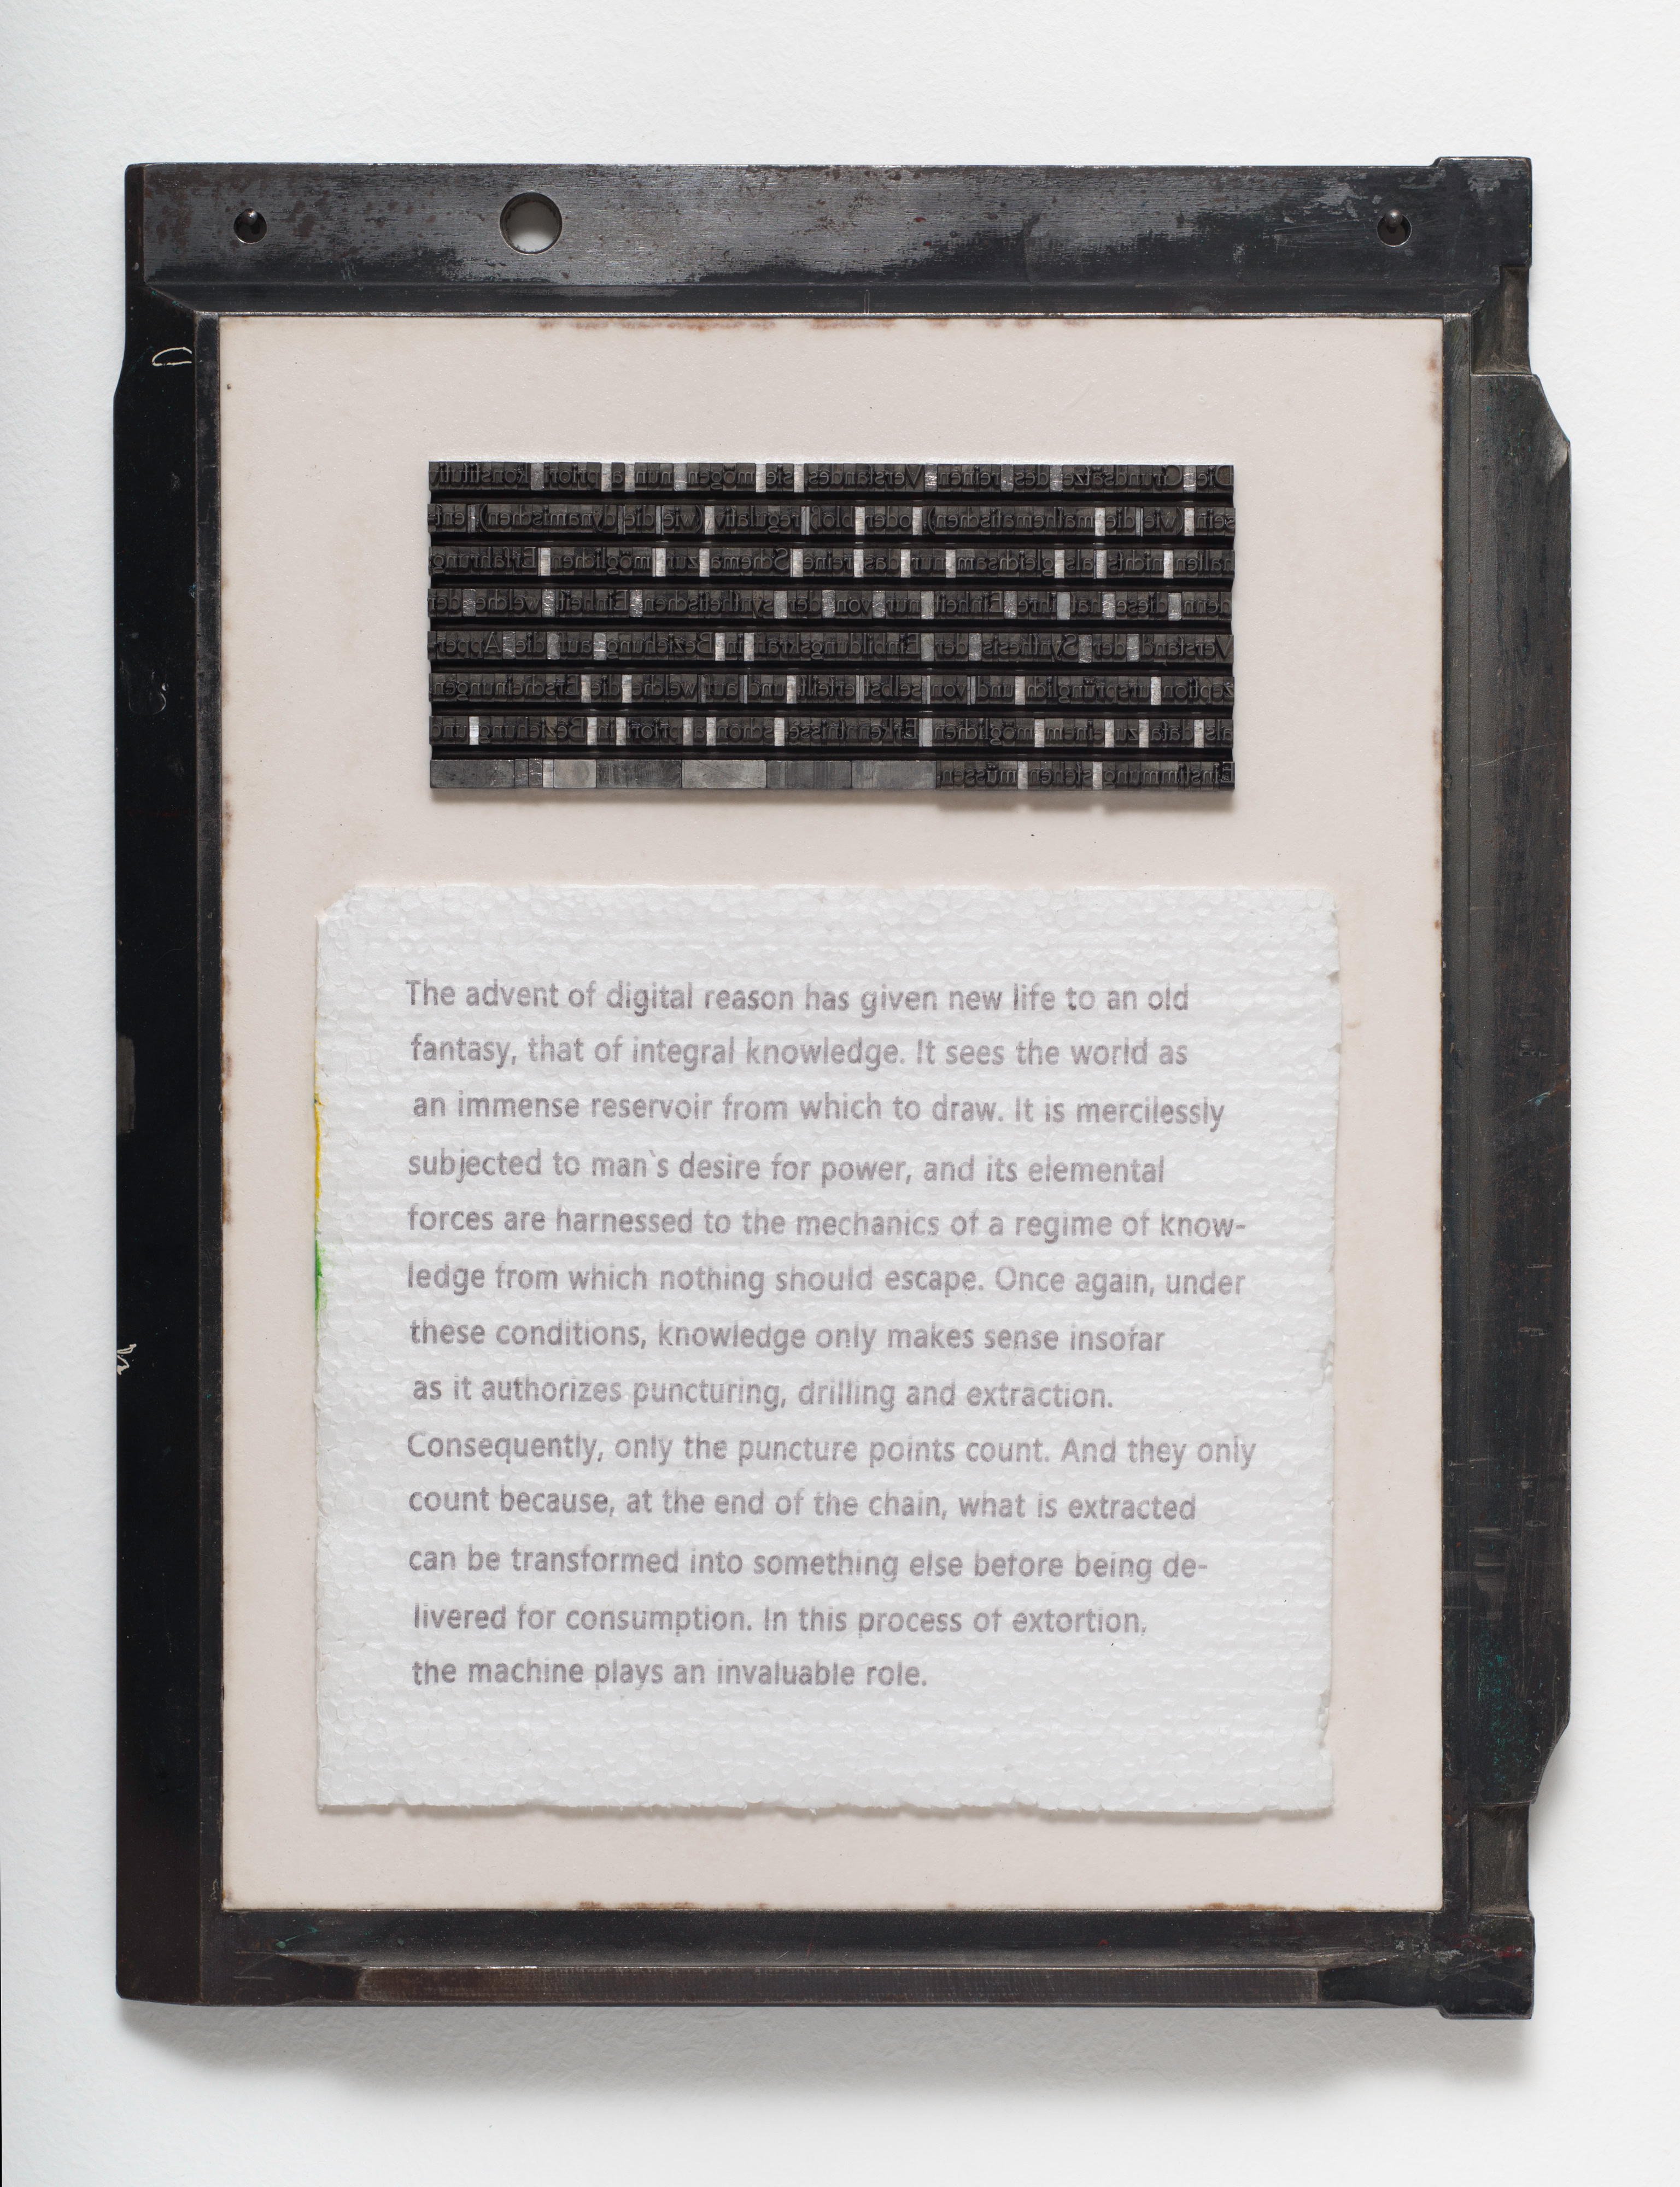 Die Grundsätze des reinen Verstandes, sie mögen nun a priori konstitutiv
sein (wie die mathematischen), oder bloß regulativ (wie die dynamischen), ent-
halten nichts als gleichsam nur das reine Schema zur möglichen Erfahrung;
denn diese hat ihre Einheit nur von der synthetischen Einheit, welche der
Verstand der Synthesis der Einbildungskraft in Beziehung auf die Apper-
zeption ursprünglich und von selbst erteilt, und auf welche die Erscheinungen,
als data zu einem möglichen Erkenntnisse, schon a priori in Beziehung und
Einstimmung stehen müssen.
The advent of digital reason has given new life to an old
fantasy, that of integral knowledge. It sees the world as
an immense reservoir from which to draw. It is mercilessly
subjected to man`s desire for power, and its elemental
forces are harnessed to the mechanics of a regime of know-
ledge from which nothing should escape. Once again, under
these conditions, knowledge only makes sense insofar
as it authorizes puncturing, drilling and extraction.
Consequently, only the puncture points count. And they only
count because, at the end of the chain, what is extracted
can be transformed into something else before being de-
livered for consumption. In this process of extortion,
the machine plays an invaluable role.